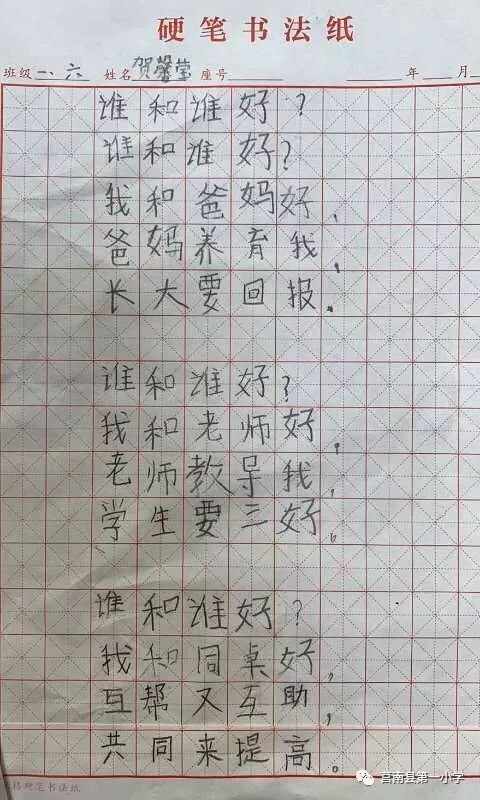 硬笔书法纸
班级 一、六 姓名 贺馨莹 座号 年 月
谁和谁好？
谁和谁好？
我和爸妈好，
爸妈养育我，
长大要回报。
谁和谁好？
我和老师好，
老师教导我，
学生要三好。
谁和谁好？
我和同桌好，
互帮又互助，
共同来提高。
格硬笔书法纸
莒南县第一小学